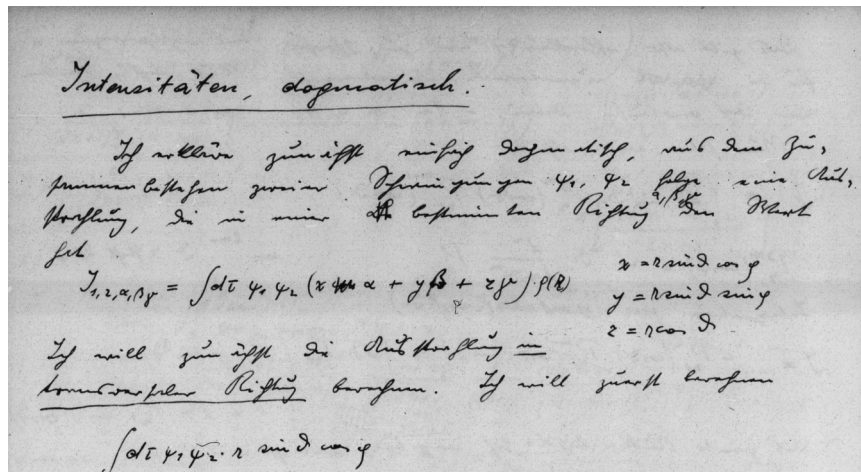 Intensitäten, dogmatisch.
Ich erkläre zunächst einfach dogmatisch, aus dem Zu-
sammenbestehen zweier Schwingungen ψ₁, ψ₂ folge eine Aus-
strahlung, die in einer bestimmten Richtung α, β, γ den Wert
hat
J₁,₂,α,βγ = ∫dτ ψ₁ ψ₂ (x α + y β + z γ)·ρ(r)
x = r sin ϑ cos φ
y = r sin ϑ sin φ
z = r cos ϑ
Ich will zunächst die Ausstrahlung in
transversaler Richtung berechnen. Ich will zuerst berechnen
∫dτ ψ₁ ψ₂· r sin ϑ cos φ